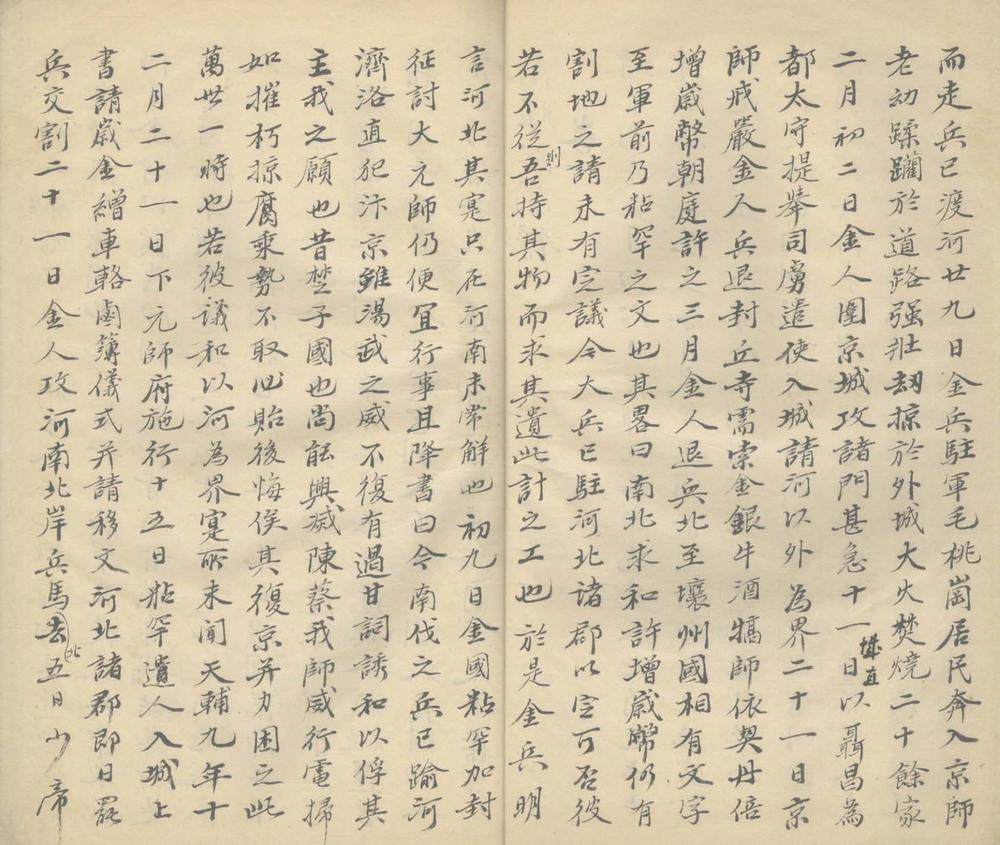 而走兵已渡河廿九日金兵駐軍毛桃崗居民奔入京師
老幼蹂躪於道路强壯刼掠於外城大火焚燒二十餘家
二月初二日金人圍京城攻諸門甚急十一日以聶昌為
都太守提舉司虜遣使入城請河以外為界二十一日京
師戒嚴金人兵退封丘寺需索金銀牛酒犒師依契丹倍
增嵗幣朝庭許之三月金人退兵北至壤州國相有文字
至軍前乃粘罕之文也其畧曰南北求和許增嵗幣仍有
割地之請未有定議今大兵已駐河北諸郡以定可否彼
若不從則吾持其物而求其遺此計之工也於是金兵明
言河北其寔只在河南未常解也初九日金國粘罕加封
征討大元師仍便冝行事且降書曰今南伐之兵已踰河
濟洛直犯汴京雖湯武之威不復有過甘詞誘和以俘其
主我之願也昔楚子國也尚能興滅陳蔡我師威行電掃
如摧朽掠腐乘勢不取必貽後悔俟其復京并力困之此
萬世一時也若彼議和以河為界寔所未聞天輔九年十
二月二十一日下元師府施行十五日粘罕遺人入城上
書請嵗金繒車輅鹵簿儀式并請移文河北諸郡即日罷
兵交割二十一日金人攻河南北岸兵馬去北五日少帝